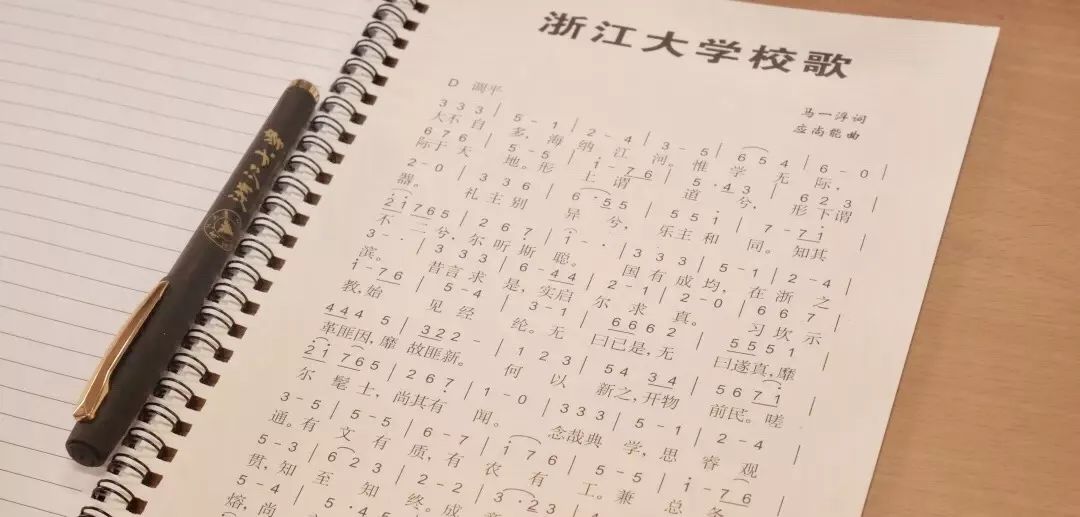 浙江大学校歌
马一浮词
D 调平
应尚能曲
3 3 3 | 5 - 1 | 2 - 4 | 3 - 5 | 6 5 4 | 6 - 0 |
大不自 多, 海 纳 江 河。惟 学 无 际,
6 7 6 | 5 - 5 | 1 - 7 6 | 5 · 4 3 | 6 2 3 |
际于天 地。形 上 谓 道 兮, 形下谓
2 - 0 | 3 3 6 | 6 · 5 5 | 5 5 1 | 7 - 7 1 |
器。 礼主别 异 兮, 乐主和 同。知其
2 1 7 6 5 | 2 6 7 | 1 - · | 3 3 3 | 5 - 1 | 2 - 4 |
不 二 兮, 尔听斯 聪。 国有成 均, 在 浙 之
3 - · | 3 3 3 | 6 - 4 4 | 2 - 1 | 2 - 0 | 6 6 7 |
滨。 昔言求 是, 实启 尔 求 真。 习坎示
1 - 7 6 | 5 - 4 | 3 - 1 | 6 6 6 2 | 5 5 5 1 |
教,始 见 经 纶。无 曰已是,无 曰遂真,靡
4 4 4 5 | 3 2 2 - | 1 2 3 | 5 4 3 4 | 5 6 7 1 |
革匪因,靡 故匪新。 何 以 新之,开物 前民。嗟
2 1 7 6 5 | 2 6 7 | 1 - 0 | 3 3 3 | 5 - 1 | 2 - 4 |
尔 髦士,尚其有 闻。 念哉典 学,思 睿 观
3 - 5 | 5 - 5 | 6 - 7 | 1 7 6 | 5 - 5 | 1 - 7 6 |
通。有 文 有 质,有 农 有 工。兼 总 条
5 - 3 | 6 2 3 | 2 - 2 | 3 · 2 3
贯,知 至 知 终。成
5 - 4
熔,尚
浙江大学